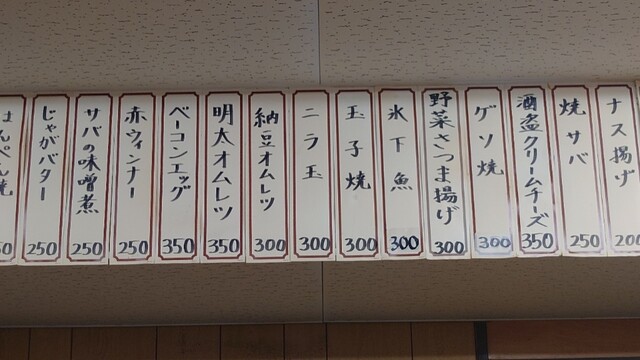 ナス揚げ
200
焼サバ
250
酒盗クリームチーズ
350
ゲソ焼
300
野菜さつま揚げ
300
氷下魚
300
玉子焼
300
ニラ玉
300
納豆オムレツ
300
明太オムレツ
350
ベーコンエッグ
350
赤ウィンナー
250
サバの味噌煮
250
じゃがバター
250